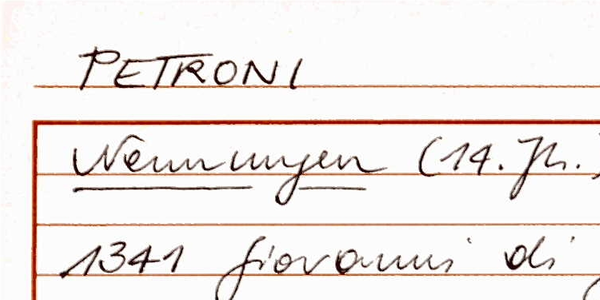 PETRONI
Nennungen (14. Jh.)
1341 Giovanni di